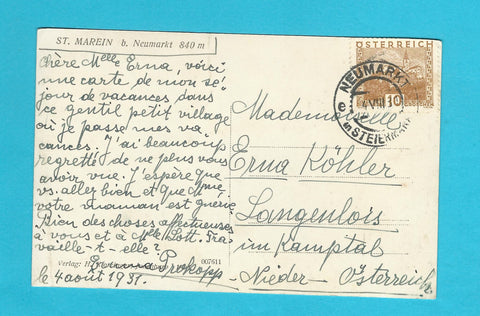 ST. MAREIN b. Neumarkt 840 m
Chère Melle Erna, voici
une carte de mon sé-
jour de vacances dans
ce gentil petit village
où je passe mes va
cances. J'ai beaucoup
regretté de ne plus vous
avoir vue. J'espère que
vs. allez bien et que Mme
votre maman est guérie.
Bien des choses affectueuses
à vous et à Melle Lott. Tra
vaille-t-elle?
Prokopp
le 4 août 1931.
Verlag: H.
007611
ÖSTERREICH
NEUMARKT
e 4.VIII
in STEIERMARK
Mademoiselle
Erna Köhler
Langenlois
im Kamptal
Nieder-Österreich